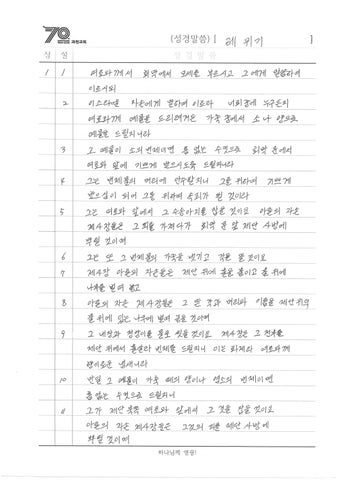 70 과천교회 (성경말씀) [ 레위기 ]
장 절 성경말씀
1 1 여호와께서 회막에서 모세를 부르시고 그에게 말씀하여
이르시되
2 이스라엘 자손에게 말하여 이르라 너희중에 누구든지
여호와께 예물을 드리려거든 가축 중에서 소나 양으로
예물을 드릴지니라
3 그 예물이 소의 번제이면 흠 없는 수컷으로 회막 문에서
여호와 앞에 기쁘게 받으시도록 드릴지니라
4 그는 번제물의 머리에 안수할지니 그를 위하여 기쁘게
받으심이 되어 그를 위하여 속죄가 될 것이라
5 그는 여호와 앞에서 그 수송아지를 잡을 것이요 아론의 자손
제사장들은 그 피를 가져다가 회막 문 앞 제단 사방에
뿌릴 것이며
6 그는 또 그 번제물의 가죽을 벗기고 각을 뜰 것이요
7 제사장 아론의 자손들은 제단 위에 불을 붙이고 불 위에
나무를 벌여 놓고
8 아론의 자손 제사장들은 그 뜬 각과 머리와 기름을 제단 위의
불 위에 있는 나무에 벌여 놓을 것이며
9 그 내장과 정강이를 물로 씻을 것이요 제사장은 그 전부를
제단 위에서 불살라 번제를 드릴지니 이는 화제라 여호와께
향기로운 냄새니라
10 만일 그 예물이 가축 떼의 양이나 염소의 번제이면
흠 없는 수컷으로 드릴지니
11 그가 제단 북쪽 여호와 앞에서 그것을 잡을 것이요
아론의 자손 제사장들은 그것의 피를 제단 사방에
뿌릴 것이며
하나님께 영광!